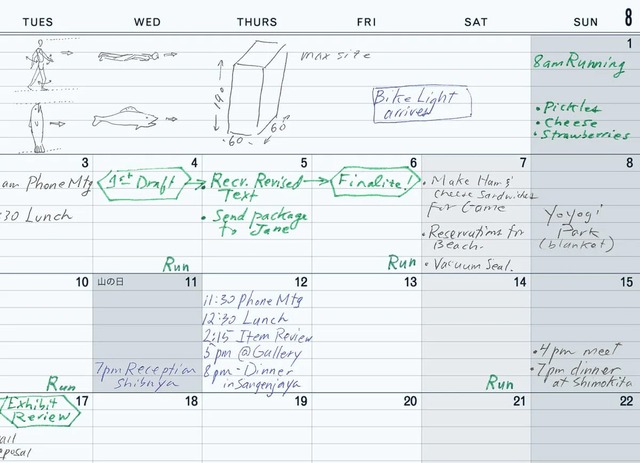 TUES WED THURS FRI SAT SUN 8
1
8am Running
max size
140
60
60
Bike Light
arrives
• Pickles
• Cheese
• Strawberries
3 4 5 6 7 8
am Phone Mtg
:30 Lunch
1st Draft
• Recv. Revised
Text
• Send package
to Jane
Finalize!
• Make Ham &
Cheese Sandwiches
for Game
• Reservations for
Beach.
• Vacuum Seal.
Yoyogi
Park
(blanket)
Run
Run
10 山の日 11 12 13 14 15
11:30 Phone Mtg
12:30 Lunch
2:15 Item Review
5pm @ Gallery
8pm - Dinner
in Sangenjaya
7pm Reception
Shibuya
• 4pm meet
• 7pm dinner
at Shimokita
Run
Run
17 18 19 20 21 22
Exhibit
Review